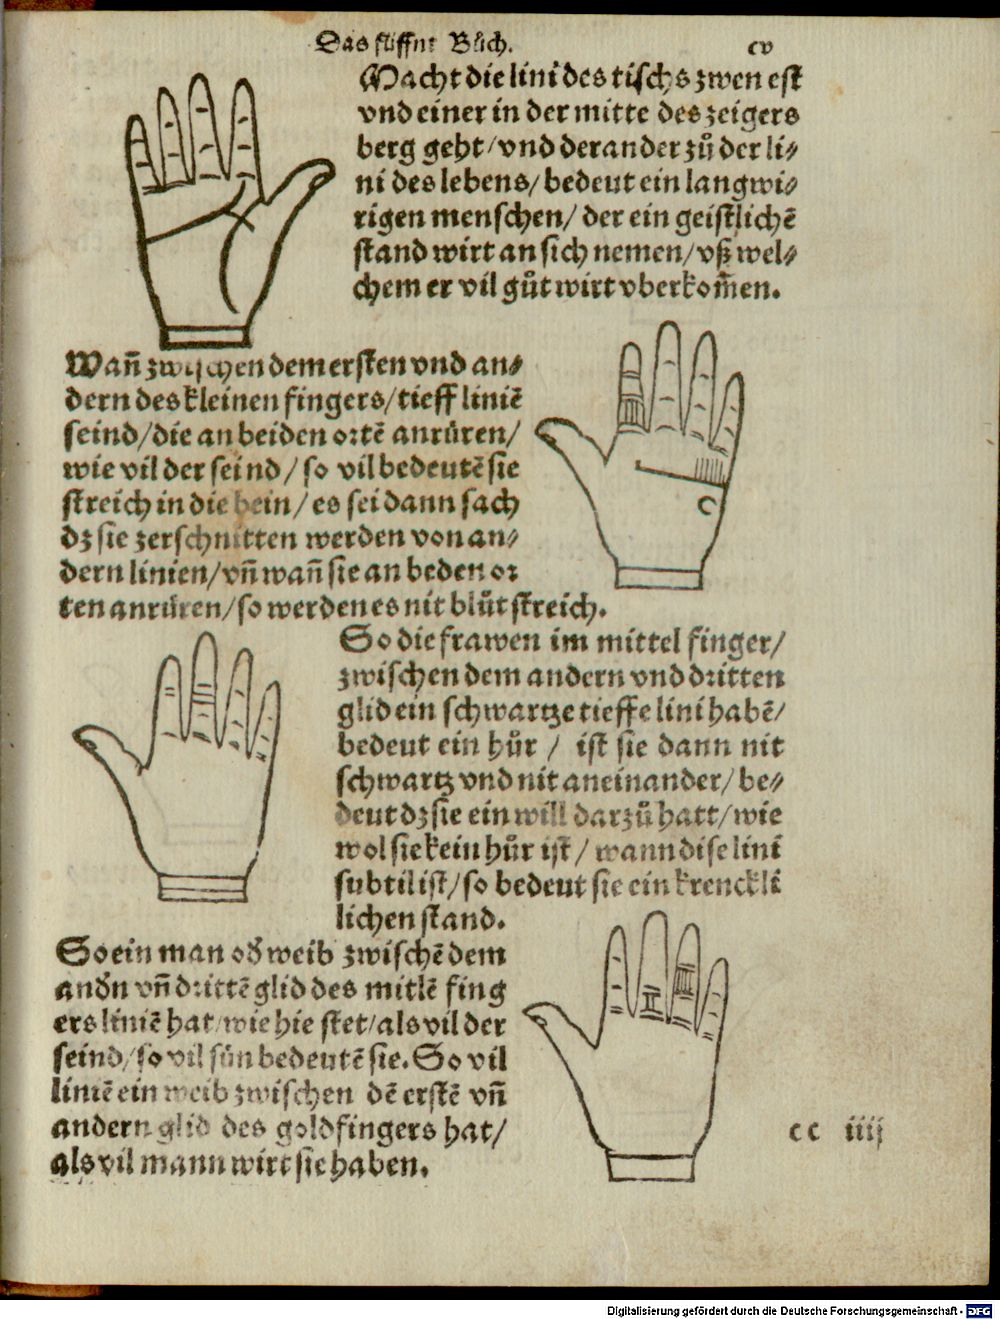 Das fünfft Bůch. cv
Macht die lini des tischs zwen est
vnd einer in der mitte des zeigers
berg geht/vnd der ander zů der li⸗
ni des lebens/bedeut ein langwi⸗
rigen menschen/der ein geistlichẽ
stand wirt an sich nemen/vß wel⸗
chem er vil gůt wirt vberkom̃en.
Wañ zwischen dem ersten vnd an⸗
dern des kleinen fingers/tieff liniẽ
seind/die an beiden ortẽ anrůren/
wie vil der seind/so vil bedeutẽ sie
streich in die bein/es sei dann sach
dz sie zerschnitten werden von an⸗
dern linien/vñ wañ sie an beden or
ten anrůren/so werden es nit blůtstreich.
So die frawen im mittel finger/
zwischen dem andern vnd dritten
glid ein schwartze tieffe lini habẽ/
bedeut ein hůr / ist sie dann nit
schwartz vnd nit aneinander/be⸗
deut dz sie ein will darzů hatt/wie
wol sie kein hůr ist/wann dise lini
subtil ist/so bedeut sie ein krenckli
lichen stand.
So ein man od᷑ weib zwischẽ dem
and᷑n vñ drittẽ glid des mitlẽ fing
ers liniẽ hat/wie hie stet/als vil der
seind/so vil sün bedeutẽ sie. So vil
liniẽ ein weib zwischen dẽ erstẽ vñ
andern glid des goldfingers hat/
als vil mann wirt sie haben.
cc iiij
Digitalisierung gefördert durch die Deutsche Forschungsgemeinschaft - DFG